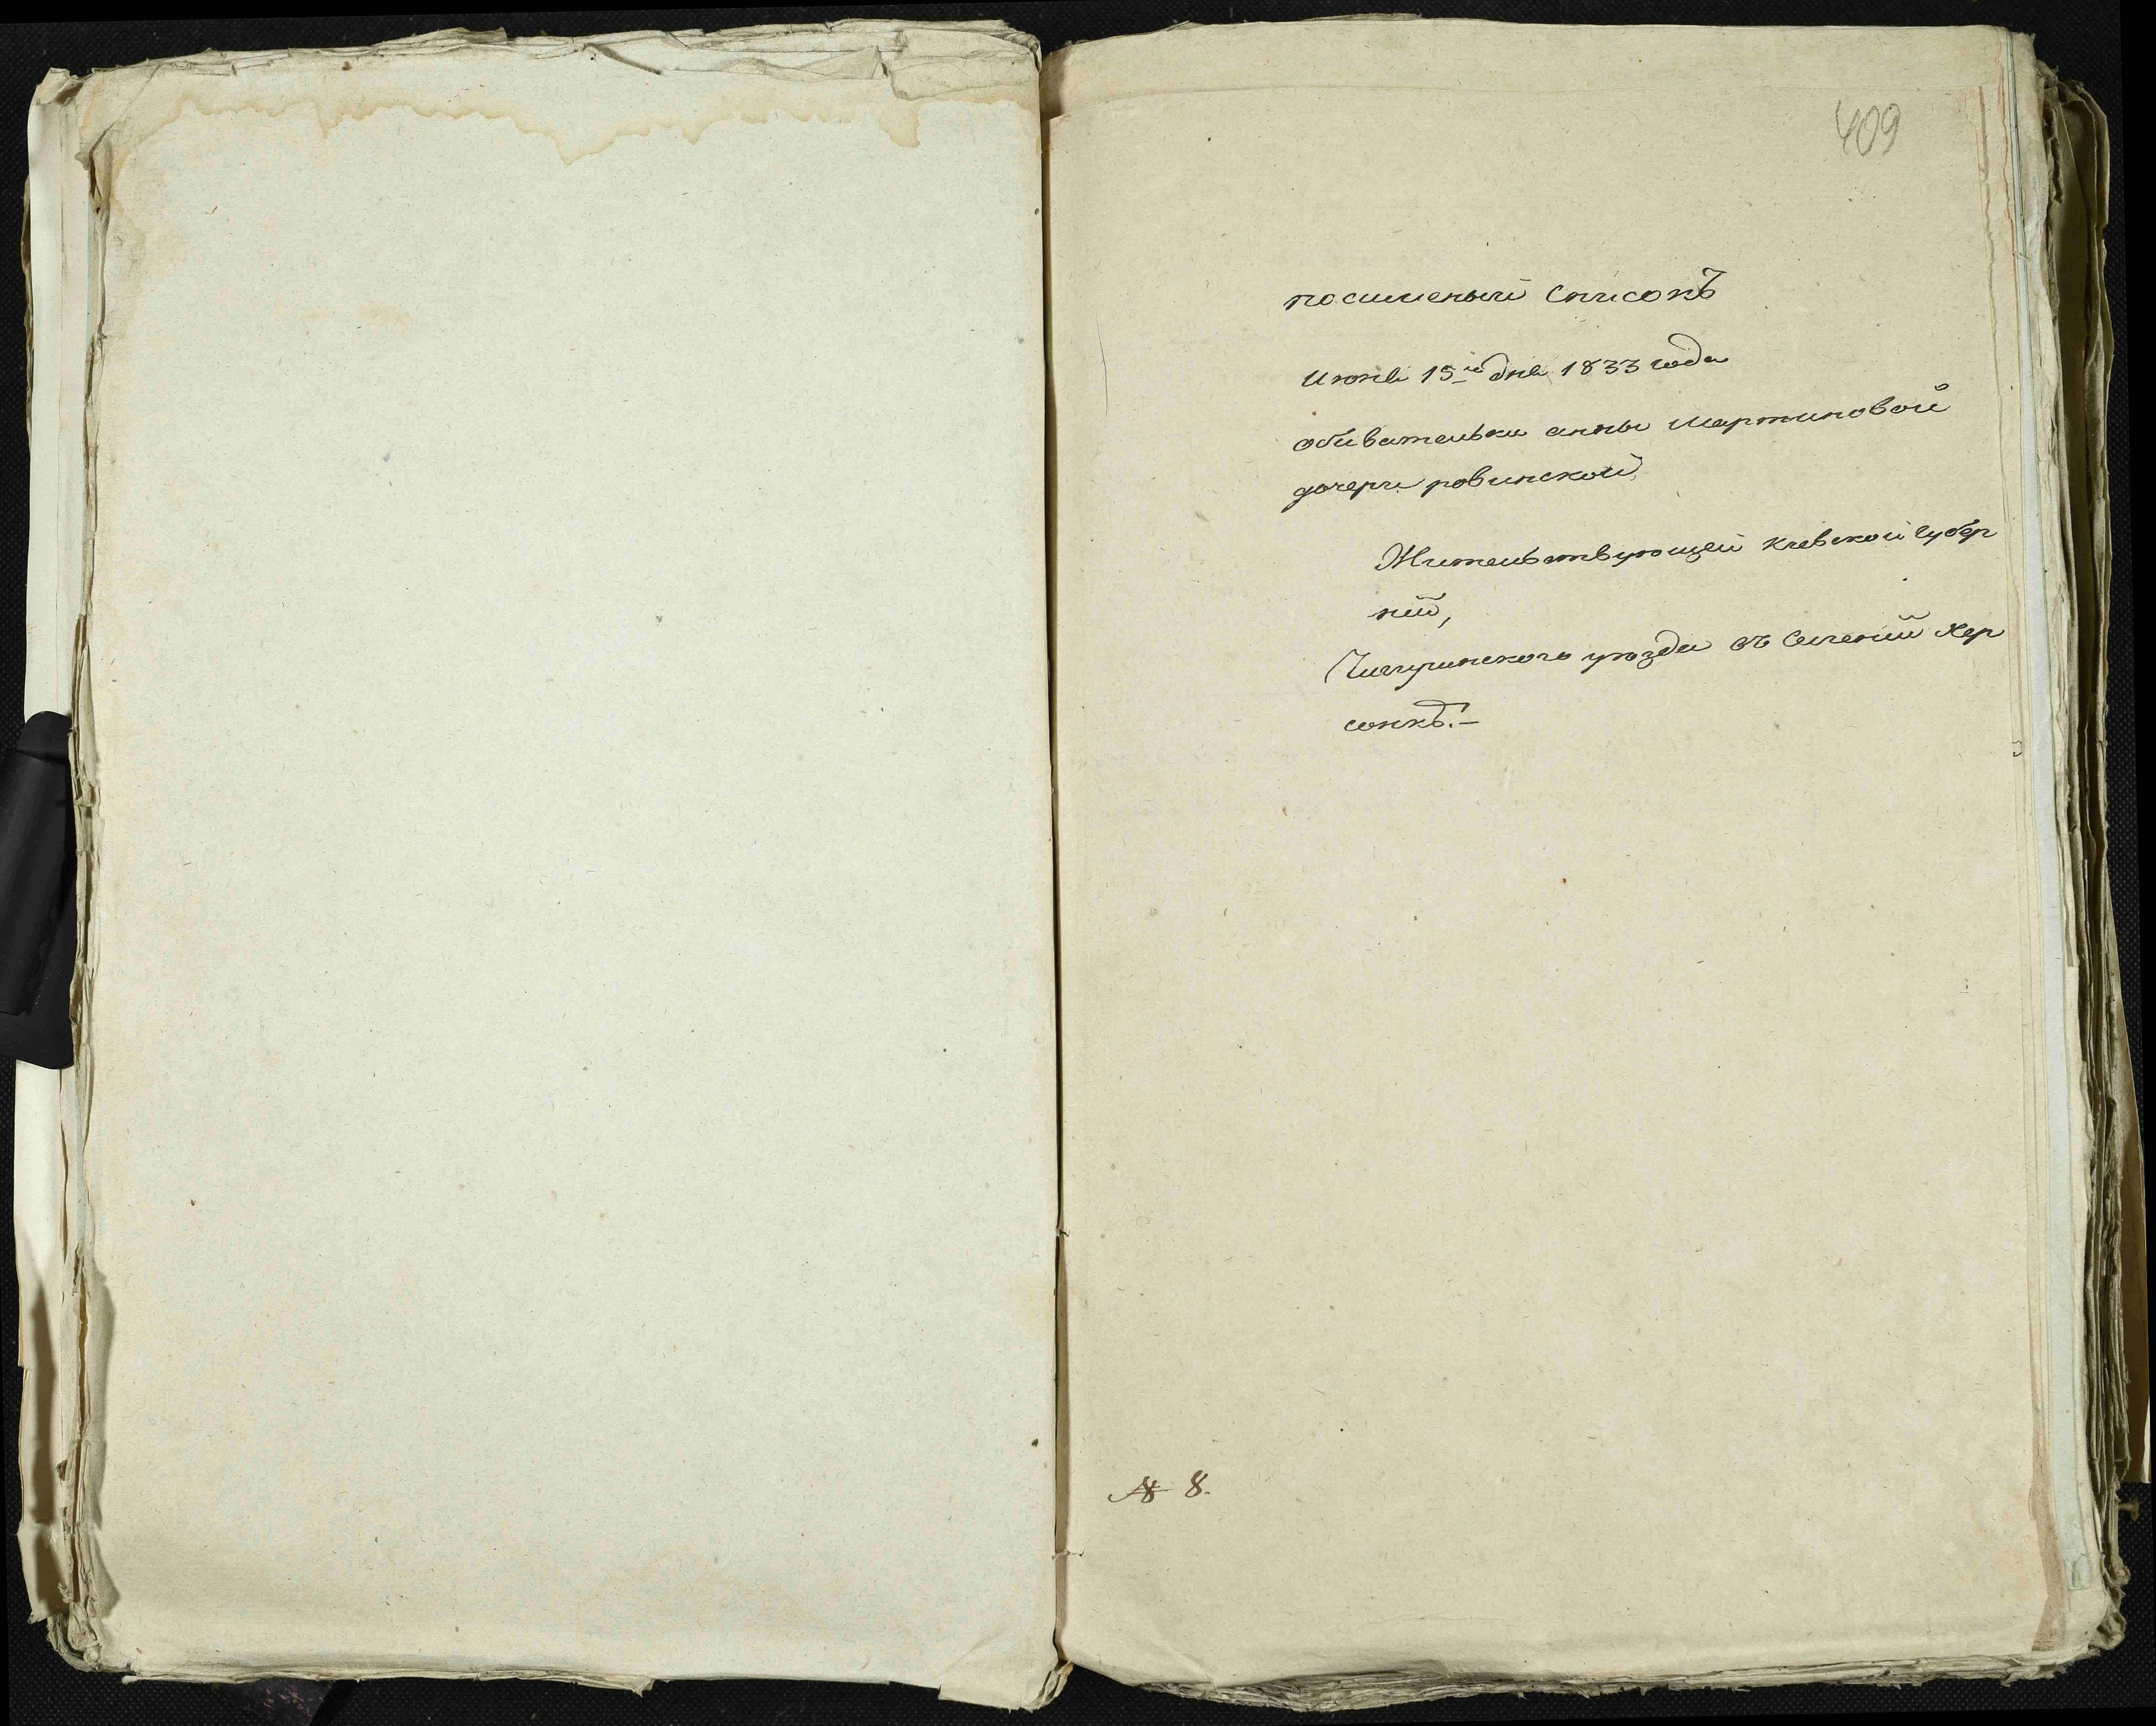 409
посименый Списокъ
Июня 15го дня 1833 года
обивательки анны мартиновой
дочери ровинской
Жительствующей киевской губер
ний,
Чигиринского уюзда въ Селений Хер
сонкѣ.—
№ 8.